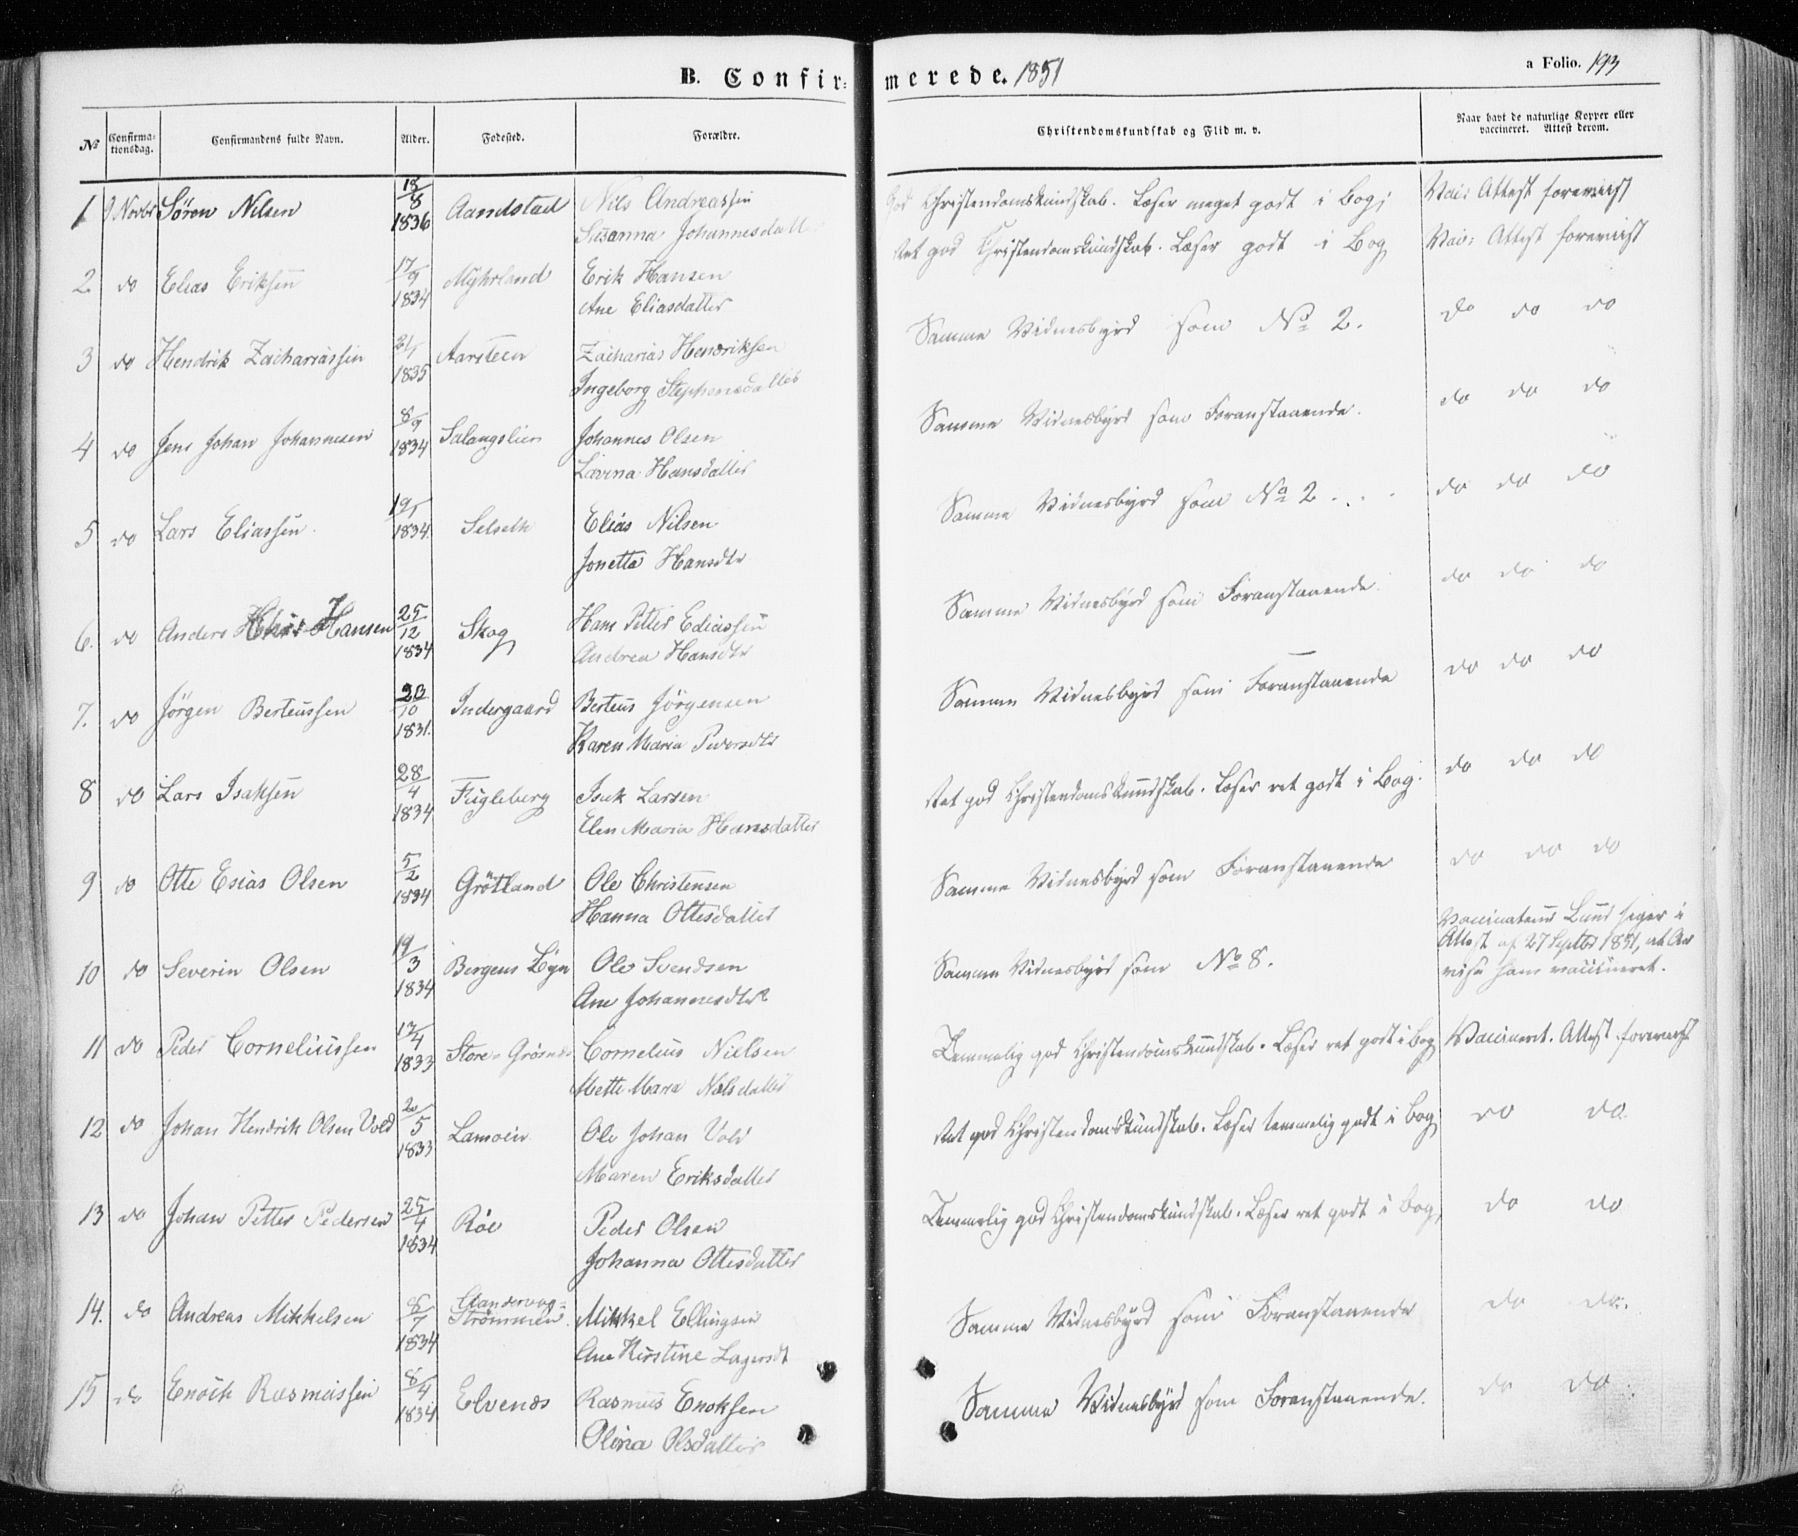 B. Confir=merede. 1851
a Folio. 193
No Confirmationsdag. Confirmandens fulde Navn. Alder. Fødested. Forældre. Christendomskundskab og Flid m. v. Naar havt de naturlige Kopper eller vaccineret. Attest derom.
1 9 Novbr Søren Nilsen 18/8 1836 Aandstad Nils Andreassen God Christendomskundskab. Læser meget godt i Bog; Vac: Attest foreviist
Susanna Johannesdatter
2 do Elias Eriksen 17/9 1834 Myhrland Erik Hansen Ret god Christendomskundskab. Læser godt i Bog Vac: Attest foreviist
Ane Eliasdatter
3 do Hendrik Zachariassen 1835 Aarsteen Zacharias Hendriksen Samme Vidnesbyrd som No 2. do do do
Ingeborg Stephensdatter
4 do Jens Johan Johannesen 8/9 1834 Salangslien Johannes Olsen Samme Vidnesbyrd som Foranstaaende. do do do
Lavina Hansdatter
5 do Lars Eliassen 1834. Selseth Elias Nilsen Samme Vidnesbyrd som No 2 . . . do do do
Jonetta Hansdtr
6. do Anders Hansen 25/12 1834 Skog Hans Petter Ediassen Samme Vidnesbyrd som Foranstaaende. do do do
Andrea Hansdtr
7. do Jørgen Berteussen 20/10 1831. Indergaard Berteus Jørgensen Samme Vidnesbyrd som Foranstaaende do do do
Karen Maria Pedersdtr
8 do Lars Isaksen 28/4 1834 Fugleberg Isak Larsen Ret god Christendomskundskab. Læser ret godt i Bog. do do do
Elen Maria Hansdatter
9 do Otte Esias Olsen 5/2 1834 Grøtland Ole Christensen Samme Vidnesbyrd som Foranstaaende do do do
Hanna Ottesdatter
10 do Severin Olsen 19/3 1834 Bergens Byn Ole Svendsen Samme Vidnesbyrd som No 8. Vaccinateur Lund siger i
Attest af 27 Septbr 1851, at
Ane Johannesdtr ham vaccineret.
11 do Peder Corneliussen 17/4 1833 Store Grøsnæs Cornelius Nielsen Temmelig god Christendomskundskab. Læser ret godt i Bog Vaccineret. Attest foreviist
Mette Maria Nilsdatter
12 do Johan Hendrik Olsen Vold 2/5 1833 Lamoen Ole Johan Vold Ret god Christendomskundskab. Læser temmelig godt i Bog do do
Maren Eriksdatter
13 do Johan Petter Pedersen 25/4 1834 Røe Peder Olsen Temmelig god Christendomskundskab. Læser ret godt i Bog, do do
Johanna Ottesdatter
14. do Andreas Mikkelsen 6/7 1834 Strømmen. Mikkel Ellingsen Samme Vidnesbyrd som Foranstaaende do do
Ane Kirstine Lagersdt
15 do Enoch Rasmussen 8/4 1834 Elvenæs Rasmus Enoksen Samme Vidnesbyrd som Foranstaaende. do do
Olina Olsdatter